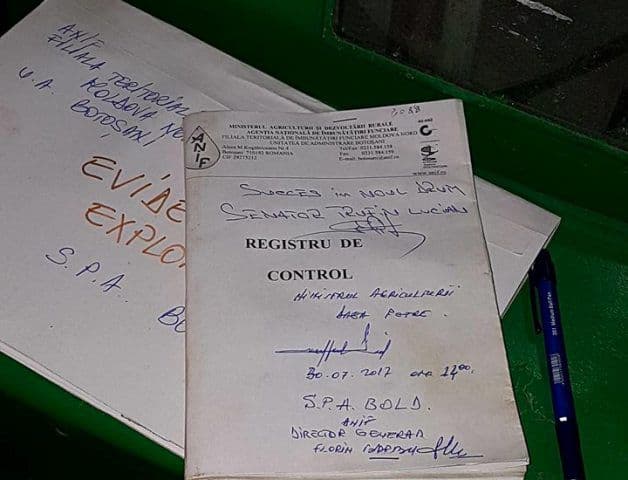 ANIF
FILIALA TERITORIAL
MOLDOVA NO
U.A. BOTOȘANI
EVIDE
EXPLO
S.P.A.
BO
3088
MINISTERUL AGRICULTURII ȘI DEZVOLTĂRII RURALE
AGENȚIA NAȚIONALĂ DE ÎMBUNĂTĂȚIRI FUNCIARE
FILIALA TERITORIALĂ DE ÎMBUNĂTĂȚIRI FUNCIARE MOLDOVA NORD
UNITATEA DE ADMINISTRARE BOTOȘANI
ANIF
Aleea M.Kogălniceanu Nr.4
Botoșani 710183 ROMANIA
CIF 29275212
Tel/Fax: 0231.584.159
Fax: 0231.584.159
www.anif.ro
SUCCES în NOUL DRUM
SENATOR TRUFIN LUCIAN
REGISTRU DE
CONTROL
MINISTRUL AGRICULTURII
DAEA PETRE.
30.07.2017 ora 17,00.
S.P.A. BOLD.
ANIF
DIRECTOR GENERAL
FLORIN